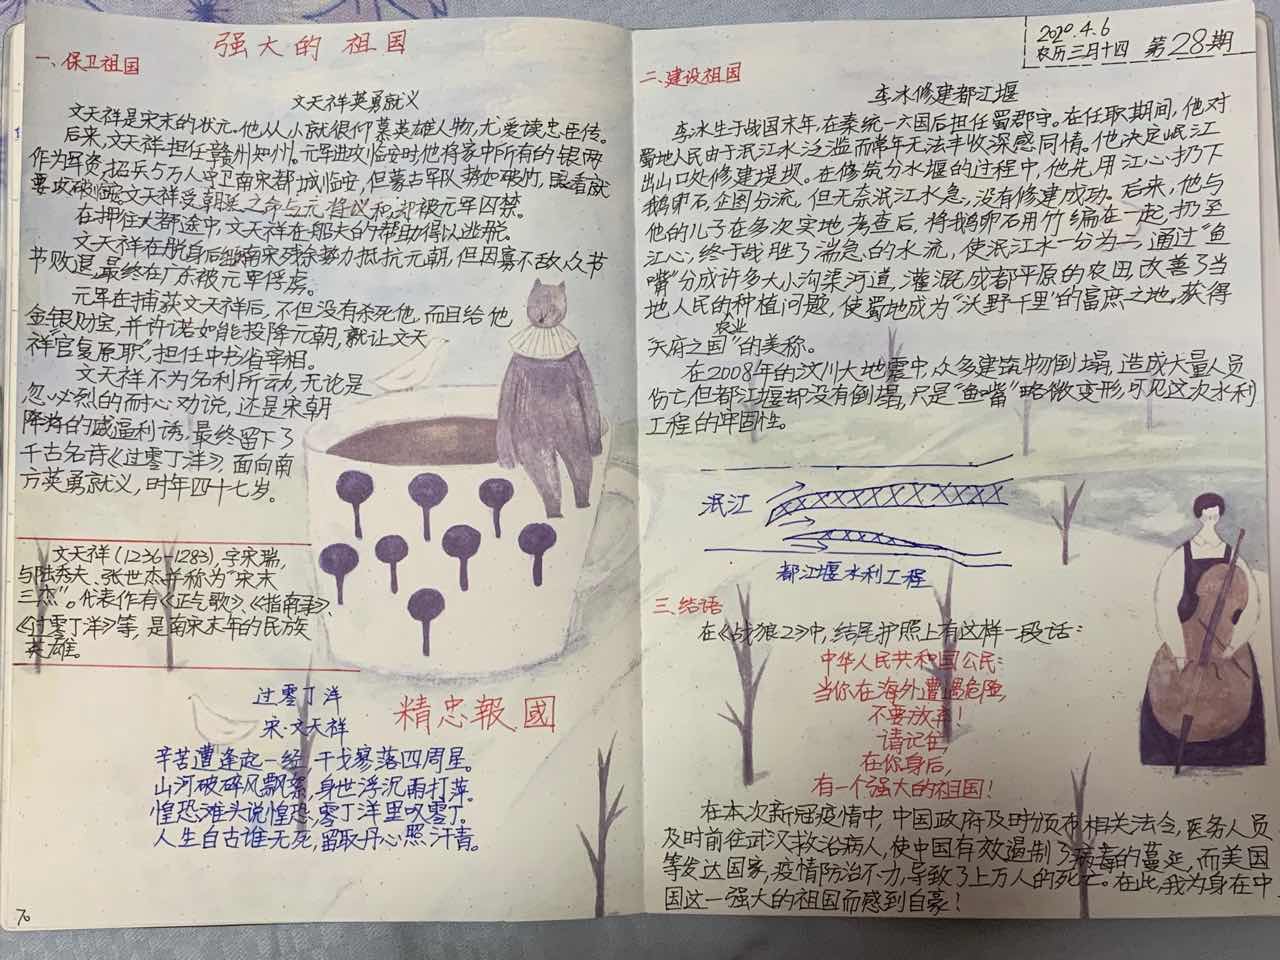 强大的祖国
一、保卫祖国
文天祥英勇就义
文天祥是宋末的状元。他从小就很仰慕英雄人物,尤爱读忠臣传。
后来,文天祥担任赣州知州。元军进攻临安时他将家中所有的银两
作为军资,招兵5万人守卫南宋都城临安,但蒙古军队势如破竹,眼看就
要攻破临安文天祥受朝廷之命与元将议和,却被元军囚禁。
在押往大都途中,文天祥在船夫的帮助得以逃脱。
文天祥在脱身后组南宋残余势力抵抗元朝,但因寡不敌众节
节败退,最终在广东被元军俘虏。
元军在捕获文天祥后,不但没有杀死他,而且给他
金银财宝,并许诺如能投降元朝,就让文天
祥官复原职”,担任中书省宰相。
文天祥不为名利所动,无论是
忽必烈的耐心劝说,还是宋朝
降将的威逼利诱,最终留下了
千古名诗《过零丁洋》,面向南
方英勇就义,时年四十七岁。
文天祥(1236-1283),字宋瑞,
与陆秀夫、张世杰并称为“宋末
三杰”。代表作有《正气歌》、《指南录》、
《过零丁洋》等,是南宋末年的民族
英雄。
过零丁洋
宋·文天祥
精忠報國
辛苦遭逢起一经,干戈寥落四周星。
山河破碎风飘絮,身世浮沉雨打萍。
惶恐滩头说惶恐,零丁洋里叹零丁。
人生自古谁无死,留取丹心照汗青。
70
2020.4.6
农历三月十四 第28期
二、建设祖国
李冰修建都江堰
李冰生于战国末年,在秦统一六国后担任蜀郡守。在任取期间,他对
蜀地人民由于泯江水泛滥而常年无法丰收深感同情。他决定岷江
出山口处修建堤坝。在修筑分水堰的过程中,他先用江心扔下
鹅卵石,企图分流,但无奈泯江水急,没有修建成功。后来,他与
他的儿子在多次实地考查后,将鹅卵石用竹编在一起,扔至
江心,终于战胜了湍急的水流,使泯江水一分为二,通过“鱼
嘴”分成许多大小沟渠河道,灌溉成都平原的农田,改善了当
地人民的种植问题,使蜀地成为“沃野千里”的富庶之地,获得
农业
“天府之国”的美称。
在2008年的汶川大地震中,众多建筑物倒塌,造成大量人员
伤亡,但都江堰却没有倒塌,只是“鱼嘴”略微变形,可见这次水利
工程的牢固性。
泯江
都江堰水利工程
三、结语
在《战狼2》中,结尾护照上有这样一段话:
中华人民共和国公民:
当你在海外遭遇危险,
不要放弃!
请记住,
在你身后,
有一个强大的祖国!
在本次新冠疫情中,中国政府及时颁布相关法令,医务人员
及时前往武汉救治病人,使中国有效遏制了病毒的蔓延,而美国
等发达国家,疫情防治不力,导致了上万人的死亡。在此,我为身在中
国这一强大的祖国而感到自豪!